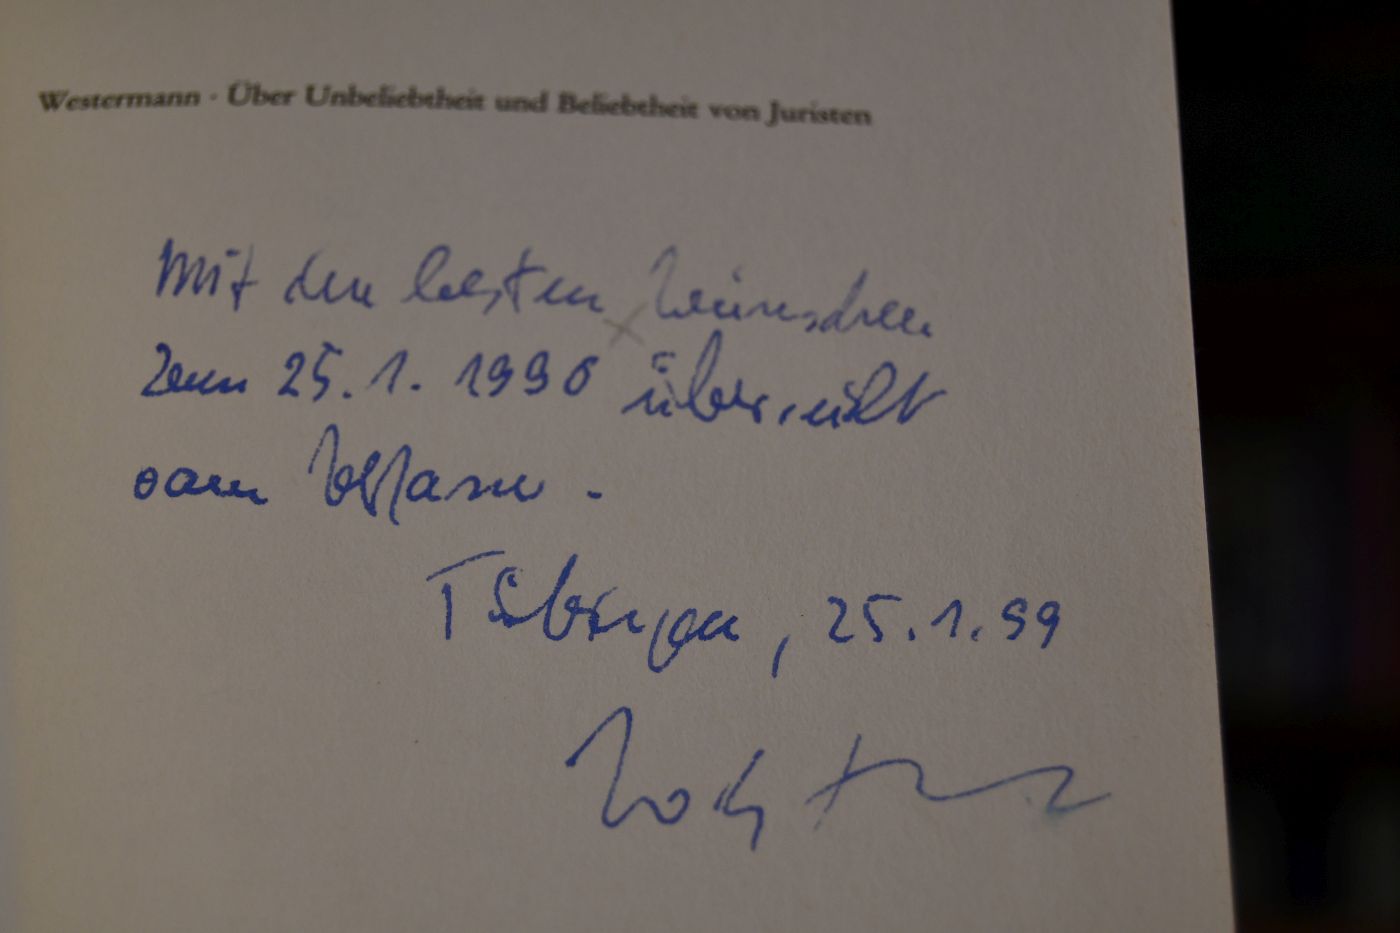 Westermann · Über Unbeliebtheit und Beliebtheit von Juristen
Mit den besten Wünschen
zum 25.1.1996 überreicht
vom Verfasser.
Tübingen, 25.1.99